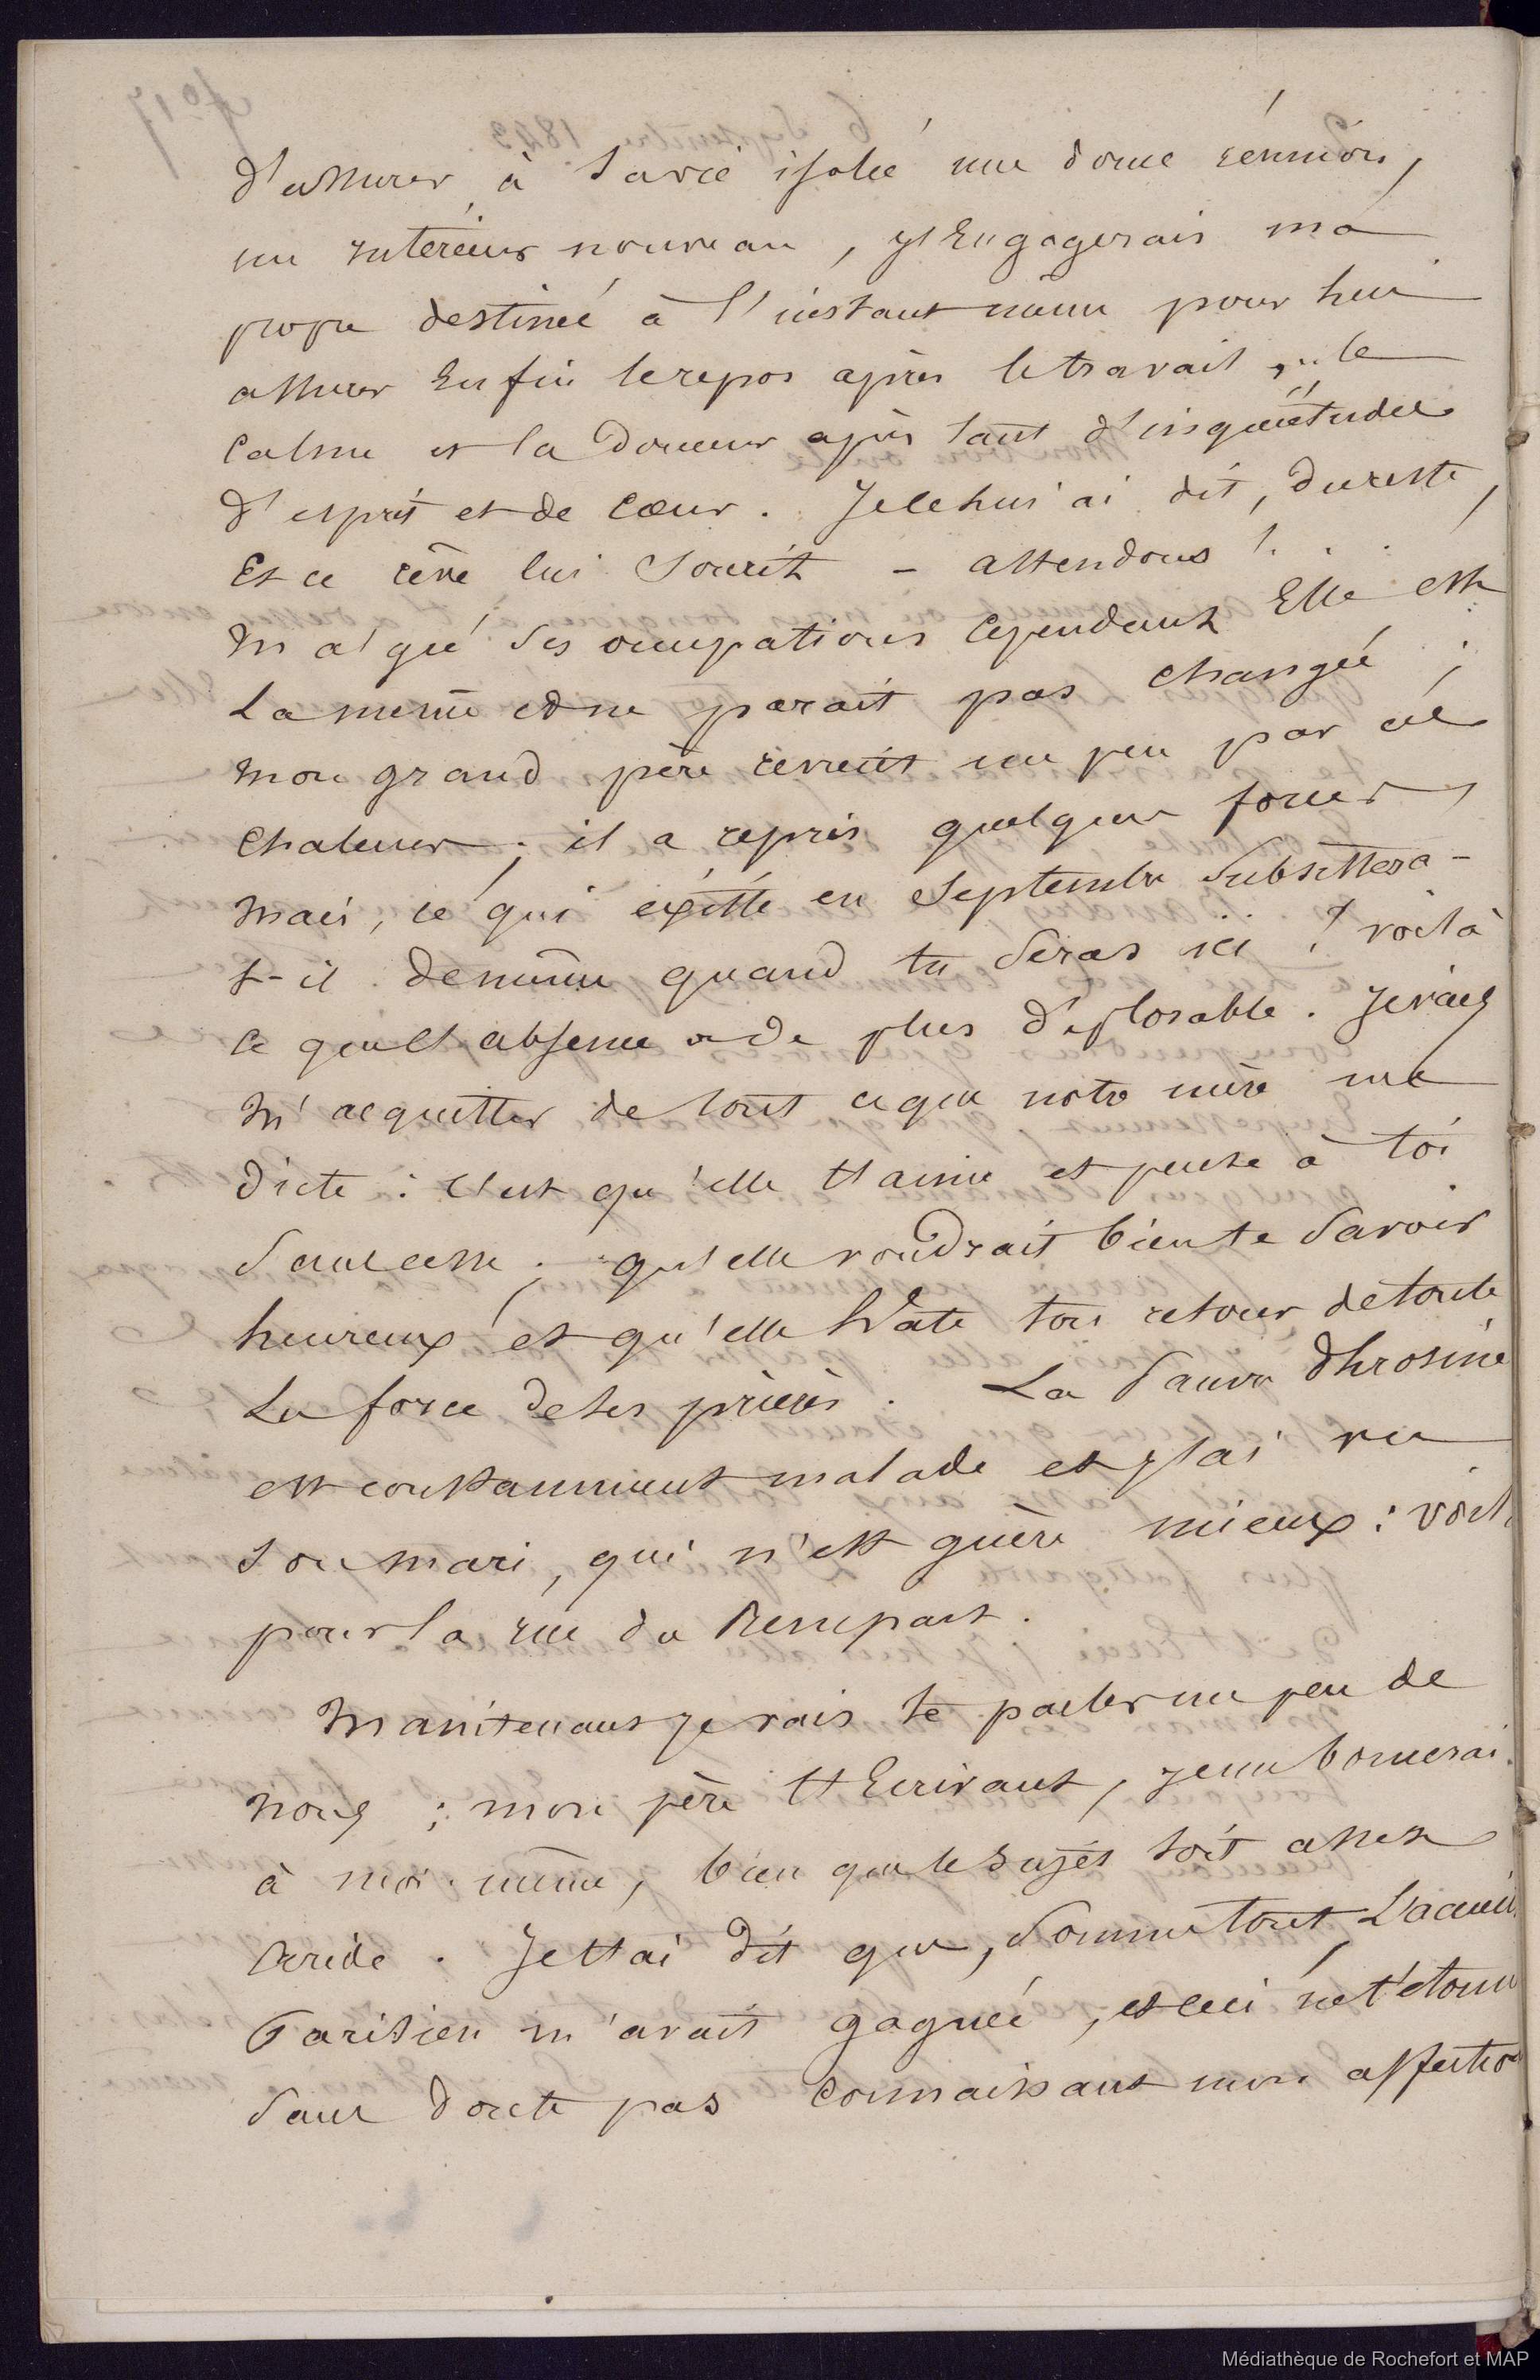 d'assurer à sa vie isolée une douce réunion,
un intérieur nouveau, j'engagerais ma
propre destinée à l'instant même pour lui
assurer enfin le repos après le travail, le
calme et la douceur après tant d'inquiétudes
d'esprit et de cœur. Je le lui ai dit, du reste,
et ce rêve lui sourit - attendons !...
Malgré ses occupations cependant Elle est
la même et ne parait pas changée ;
mon grand père revient un peu par ces
chaleurs ; il a repris quelques forces,
mais, ce qui existe en Septembre subsistera-
t-il de même quand tu seras ici ? voilà
ce que l'absence a de plus déplorable. Je vais
m'acquitter de tout ce que notre mère me
dicte : c'est qu'elle t'aime et pense à toi
sans cesse ; qu'elle voudrait bien te savoir
heureux et qu'elle hâte ton retour de toute
la force de ses prières. La pauvre
est constamment malade et j'ai vu
son mari, qui n'est guère mieux : voilà
pour la rue du Rempart.
Maintenant je vais te parler un peu de
nous ; mon père t'écrivant, je me bornerai
à moi-même, bien que le sujet soit assez
aride. Je t'ai dit que, somme toute, l'accueil
Parisien m'avait gagnée, et ceci ne t'étonne
sans doute pas connaissant mon affection
Médiathèque de Rochefort et MAP